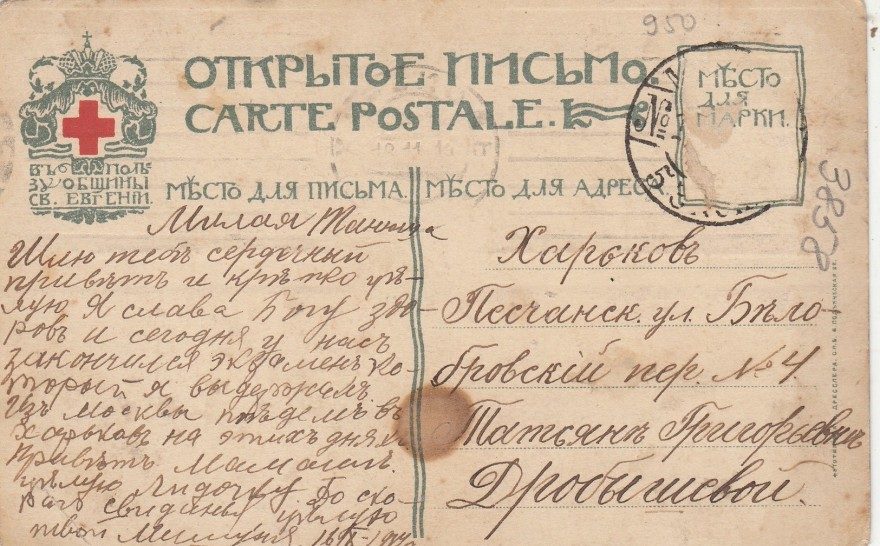 950
ОТКРЫТОЕ ПИСЬМО
CARTE POSTALE.
МѢСТО
ДЛЯ
МАРКИ.
ВЪ ПОЛЬ-
ЗУ ОБЩИНЫ
СВ. ЕВГЕНІИ.
МѢСТО ДЛЯ ПИСЬМА.
МѢСТО ДЛЯ АДРЕС
3858
Милая
Шлю тебѣ сердечный
привѣтъ и крѣпко цѣ-
лую Я слава Богу здо-
ровъ и сегодня у насъ
закончился экзаменъ ко-
торый я выдержалъ
Изъ Москвы ѣдемъ въ
Харьковъ на этихъ дняхъ
Привѣтъ Мамаши.
цѣлую До ско-
раго свиданья цѣлую
твой
Харьковъ
Песчанск. ул. Бѣло-
бровскій пер. № 4
Татьянѣ Григорьевнѣ
Дробышевой.